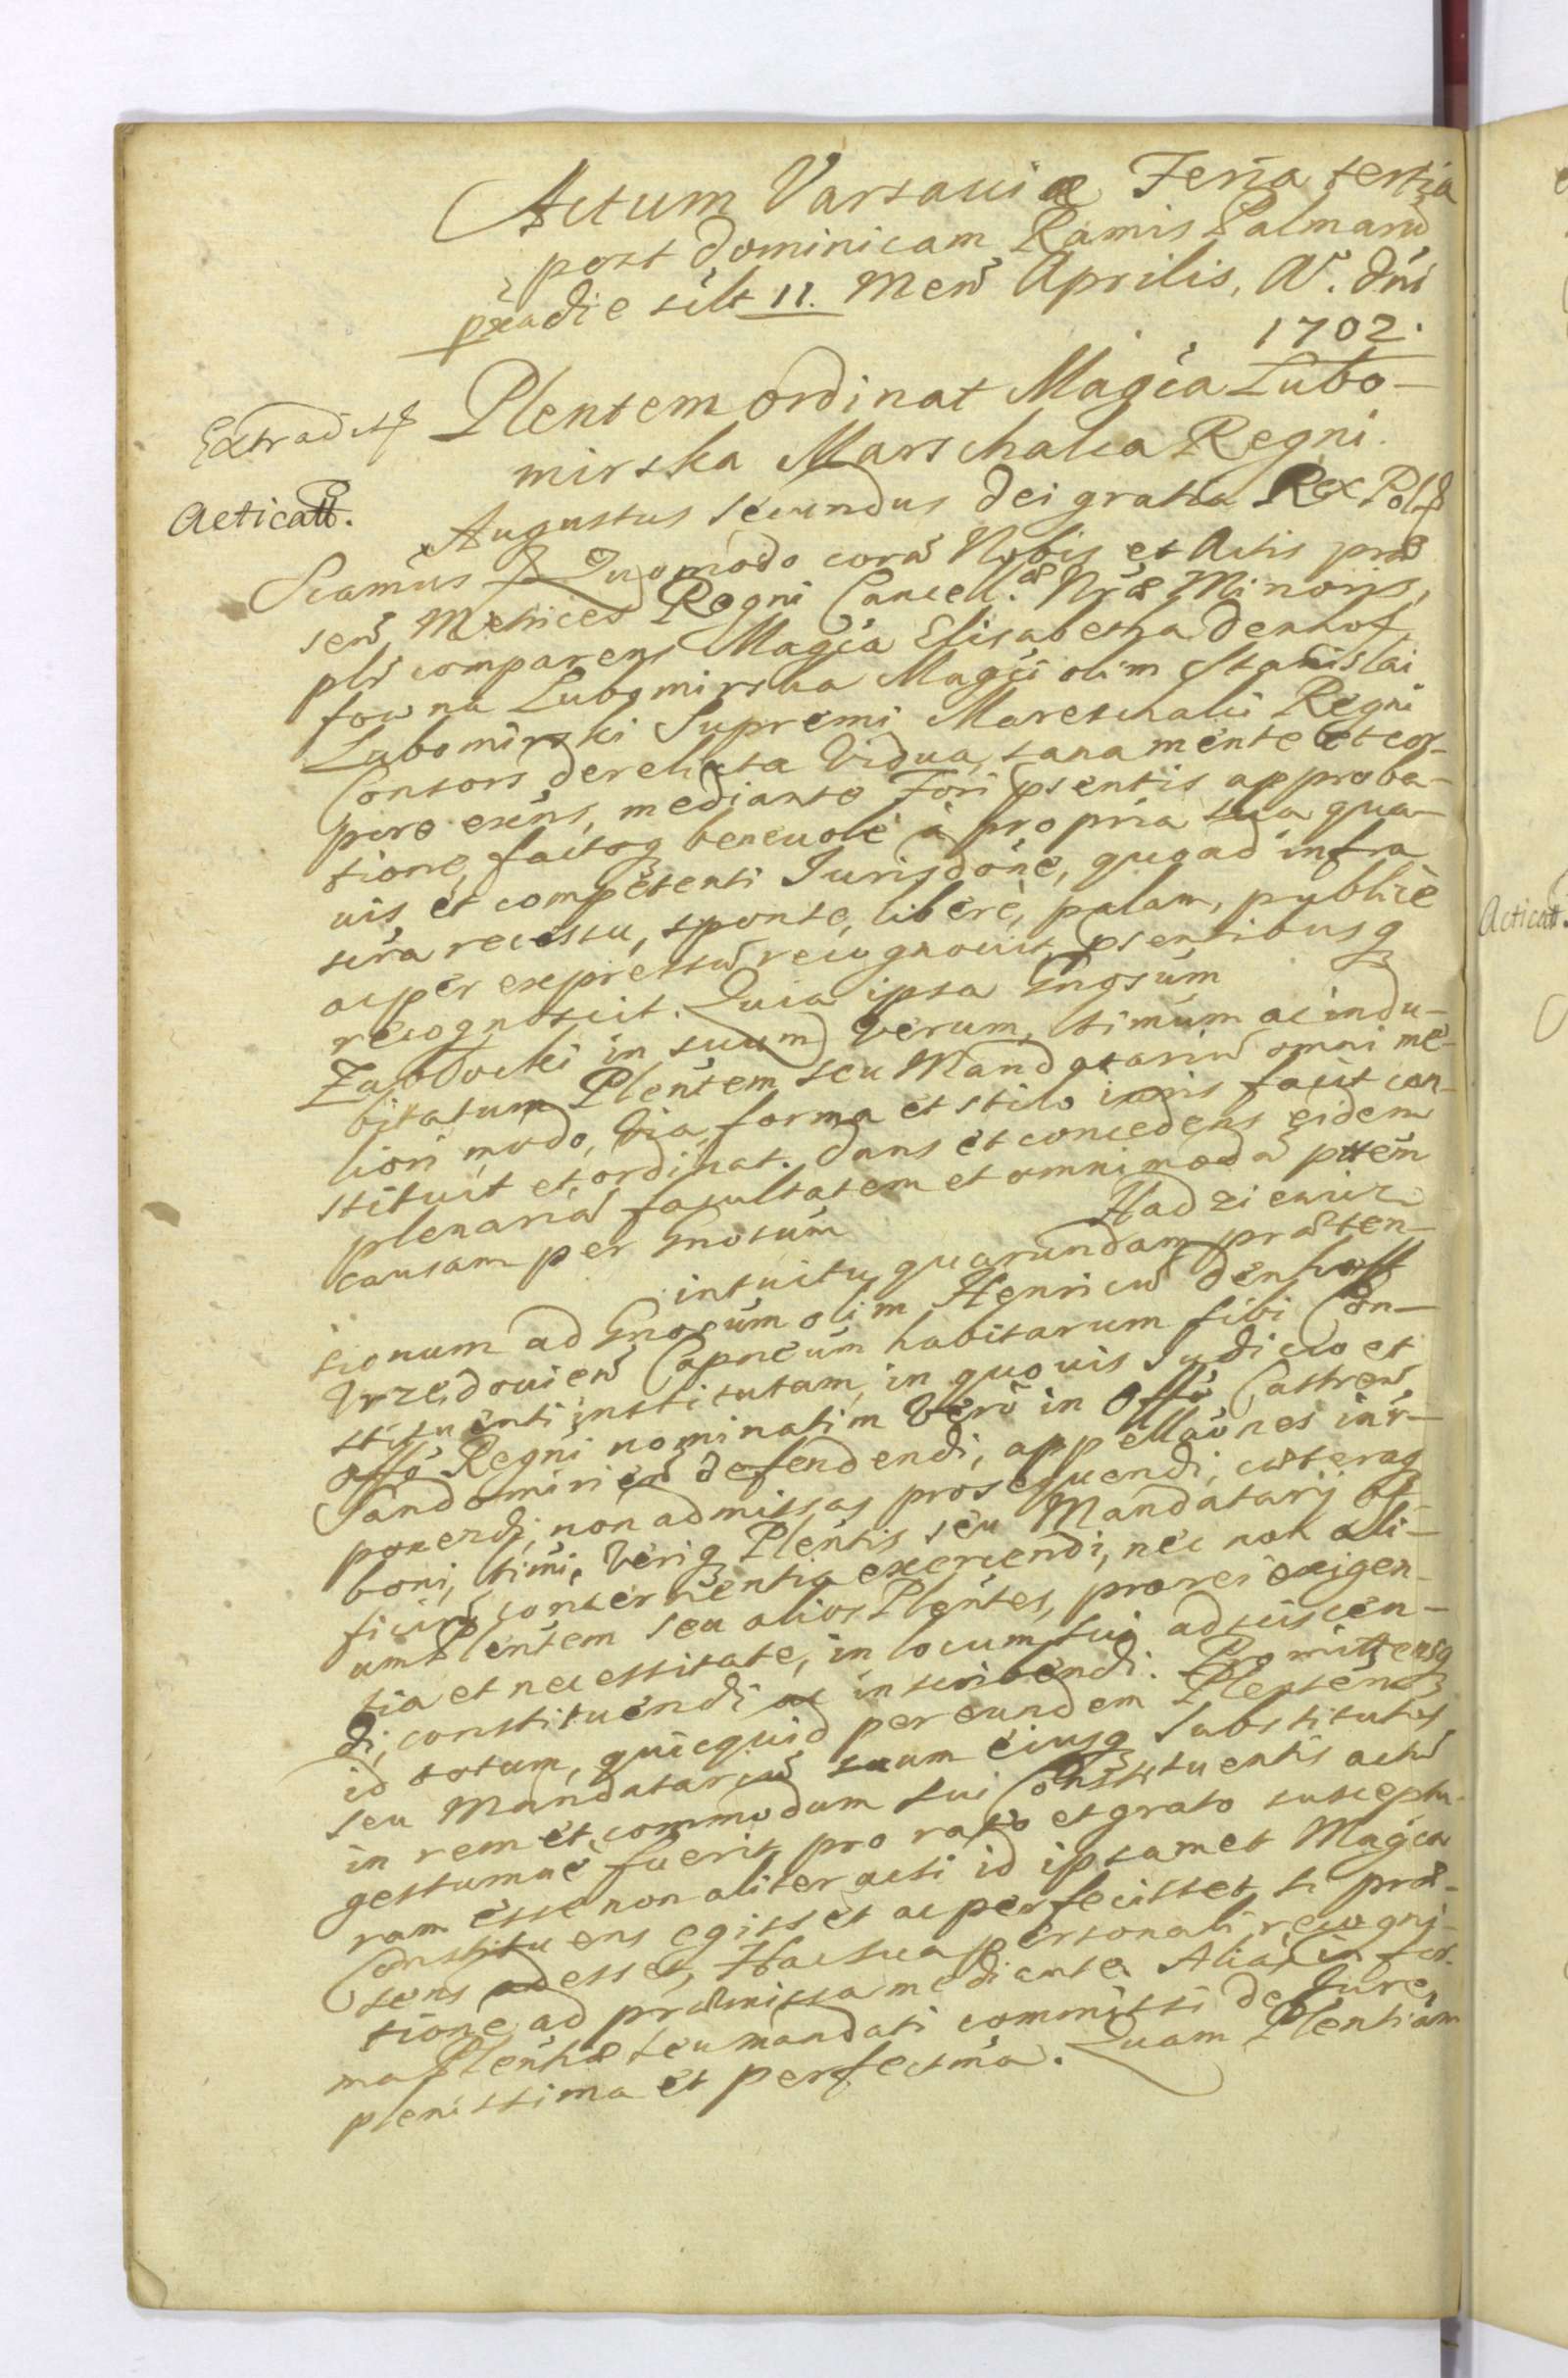 Actum Varsaviæ Feria tertia
post Dominicam Ramis Palmarũ
pridie scilt 11. Menš Aprilis, Aº. Dńi
1702.
Extradit
Plentem ordinat Magća Lubo-
mirska Marschalca Regni.
Acticatt.
Augustus secundus Dei gratia Rex Pol
Scamus Quomodo corã Nobis et Actis præ
senš, Metrices Regni Cancell.æ Nræ Minoris,
plr comparens Magća Elisabetha Denhof
fowna Lubomirska Magći olim Stanislai
Lubomirski Supremi Mareschalci Regni
Consors derelicta Vidua, sana mente et cor-
pore exńs, mediante Fori pśentis approba-
tione, factoq benevolè à propria sua qua-
vis, et competenti Jurisdóne, quoad infra
scra recessu, sponte, liberè, palam, publicè
ac per expressũ recognovit, pśentibusq
recognoscit. Quia ipsa Gnosúm
Zabłocki in suum verum, ttimum ac indu-
bitatum Plentem seu Mandatariũ omni me-
liori modo, via, forma et stilo iuris facit con-
stituit et ordinat. Dans et concedens eidem
plenariã facultatem et omnimodã pttem
causam per Gnosum Hadziewicz
intuitu quarundam præten-
sionum ad Gnosúm olim Henricũ Denhoff
Vrzedovienš Capneum habitarum sibi Con-
stituenti institutam, in quovis Judicio et
Offo Regni nominatim verò in Offo Castrenš
Sandomirienš defendendi, appellaónes inter-
ponendi, non admissas prosequendi, cæteraq
boni, ttimi, veriq Plentis seu Mandatarij of-
ficiũ concernentia exercendi, nec non ali-
um Plentem seu alios Plentes, pro rei exigen-
tia et necessitate, in locum sui adsciscen-
di, constituendi ac inscribendi. Promittensq
id totum, quicquid per eundem Plentem
seu Mandatariũ suum eiusq Substitutos
in rem et commodum sui Constituentis actũ
gestumve fuerit pro rato et grato susceptu-
ram esse non aliter acsi id ipsamet Magća
Constituens egisset ac perfecisset, si præ-
sens adesset, Hac sua personali recogni-
tione ad præmissa mediante. Alias in for-
ma Plentiæ seu mandati commissi de Jure
plenissima et perfectma. Quam Plentiam
Acticatt.